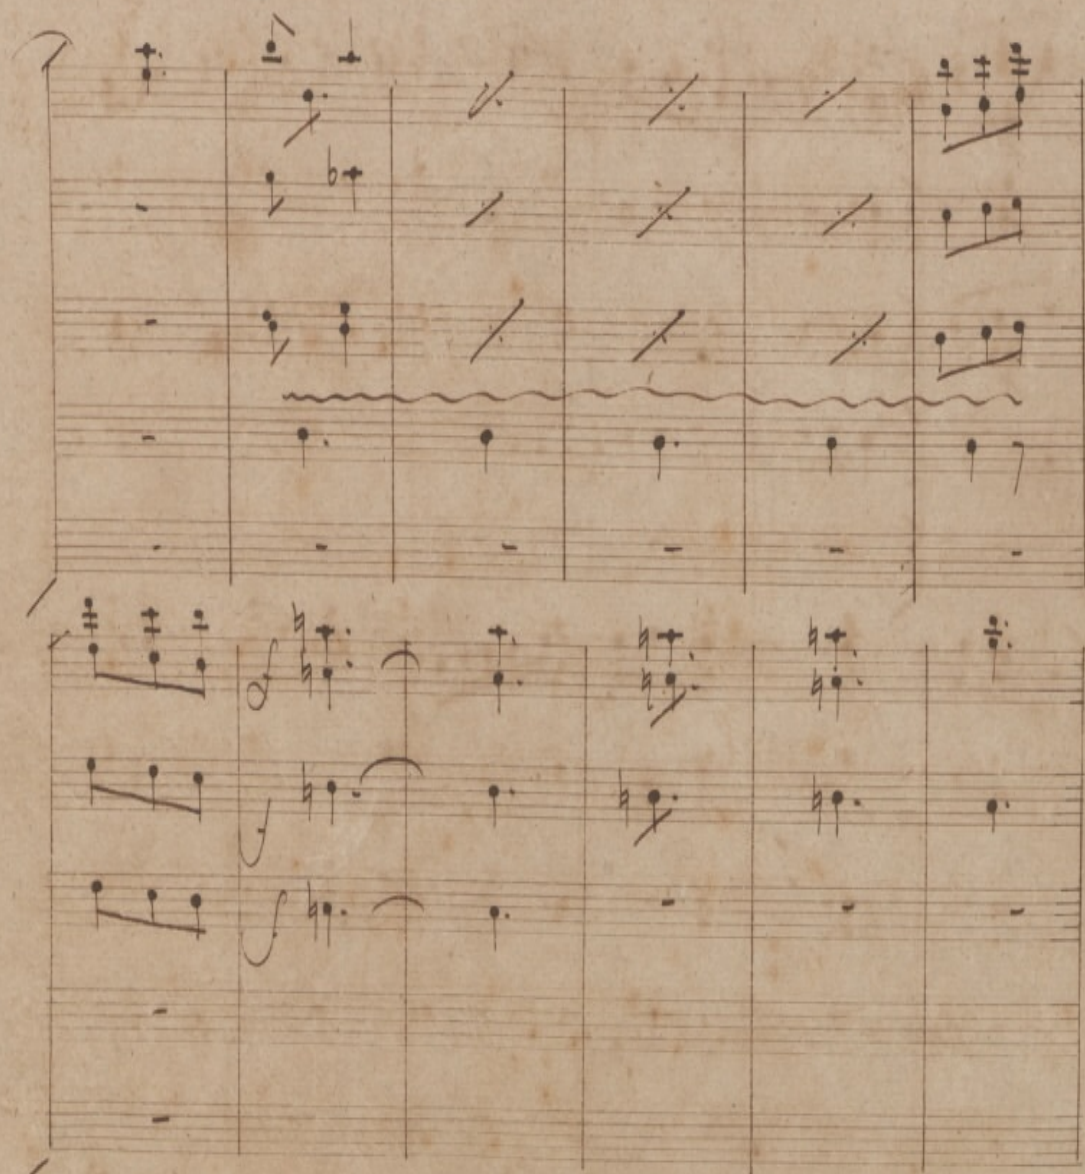 f
f
f